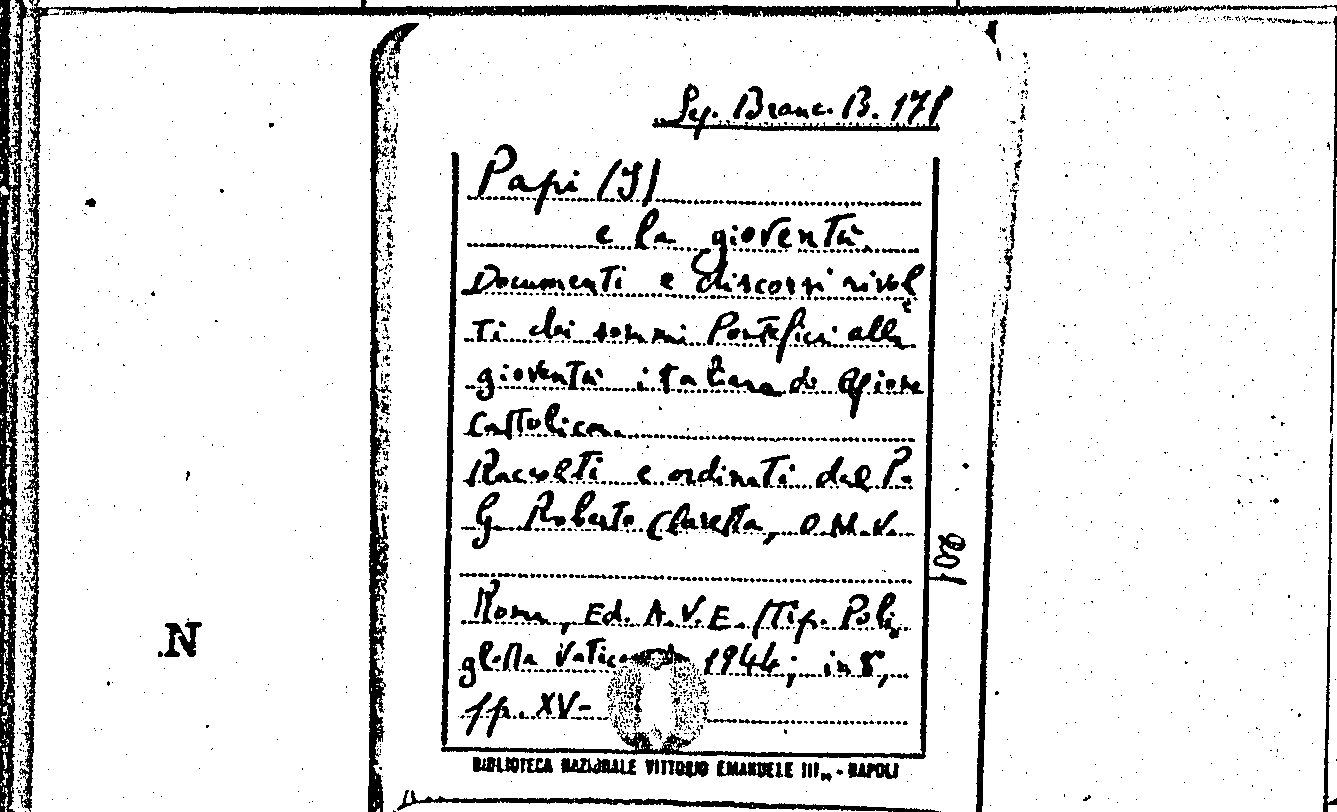 Sez. Branc. B. 178
Papi (I)
e la gioventù.
Documenti e discorsi rivol
ti dai sommi Pontefici alla
gioventù italiana di Azione
Cattolica.
Raccolti e ordinati dal P.
G. Roberto Claretta, O.M.V.
201
Roma, Ed. A.V.E. (Tip. Poli
glotta Vaticana 1944; in 8°,
pp. XV-
N.
BIBLIOTECA NAZIONALE VITTORIO EMANUELE III - NAPOLI